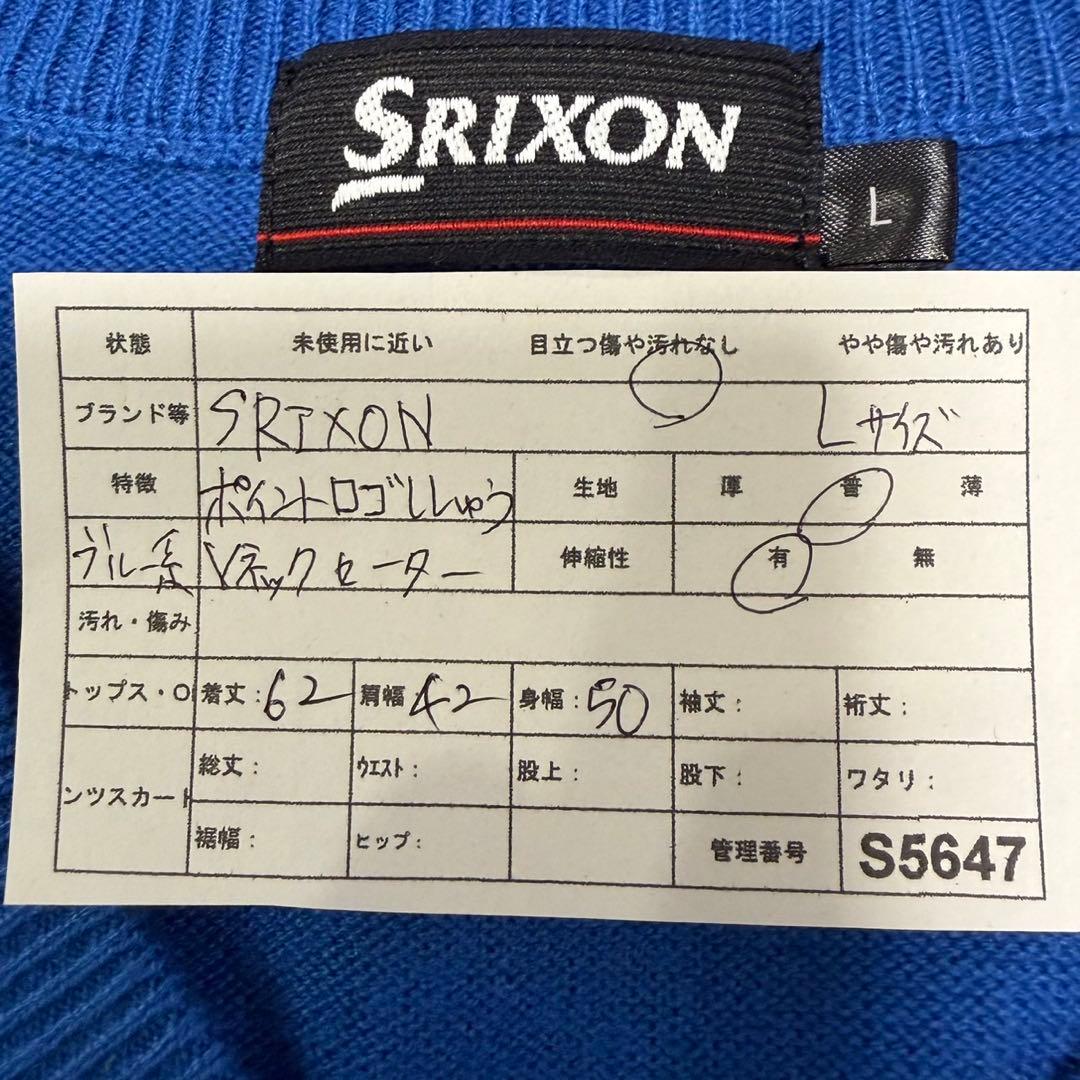 SRIXON
L
状態 未使用に近い 目立つ傷や汚れなし やや傷や汚れあり
ブランド等 SRIXON Lサイズ
特徴 ポイントロゴししゅう 生地 厚 普 薄
ブルー系 Vネックセーター 伸縮性 有 無
汚れ・傷み
トップス・O 着丈:62 肩幅 42 身幅:50 袖丈: 裄丈:
総丈: ウエスト: 股上: 股下: ワタリ:
ンツスカート
裾幅: ヒップ: 管理番号 S5647